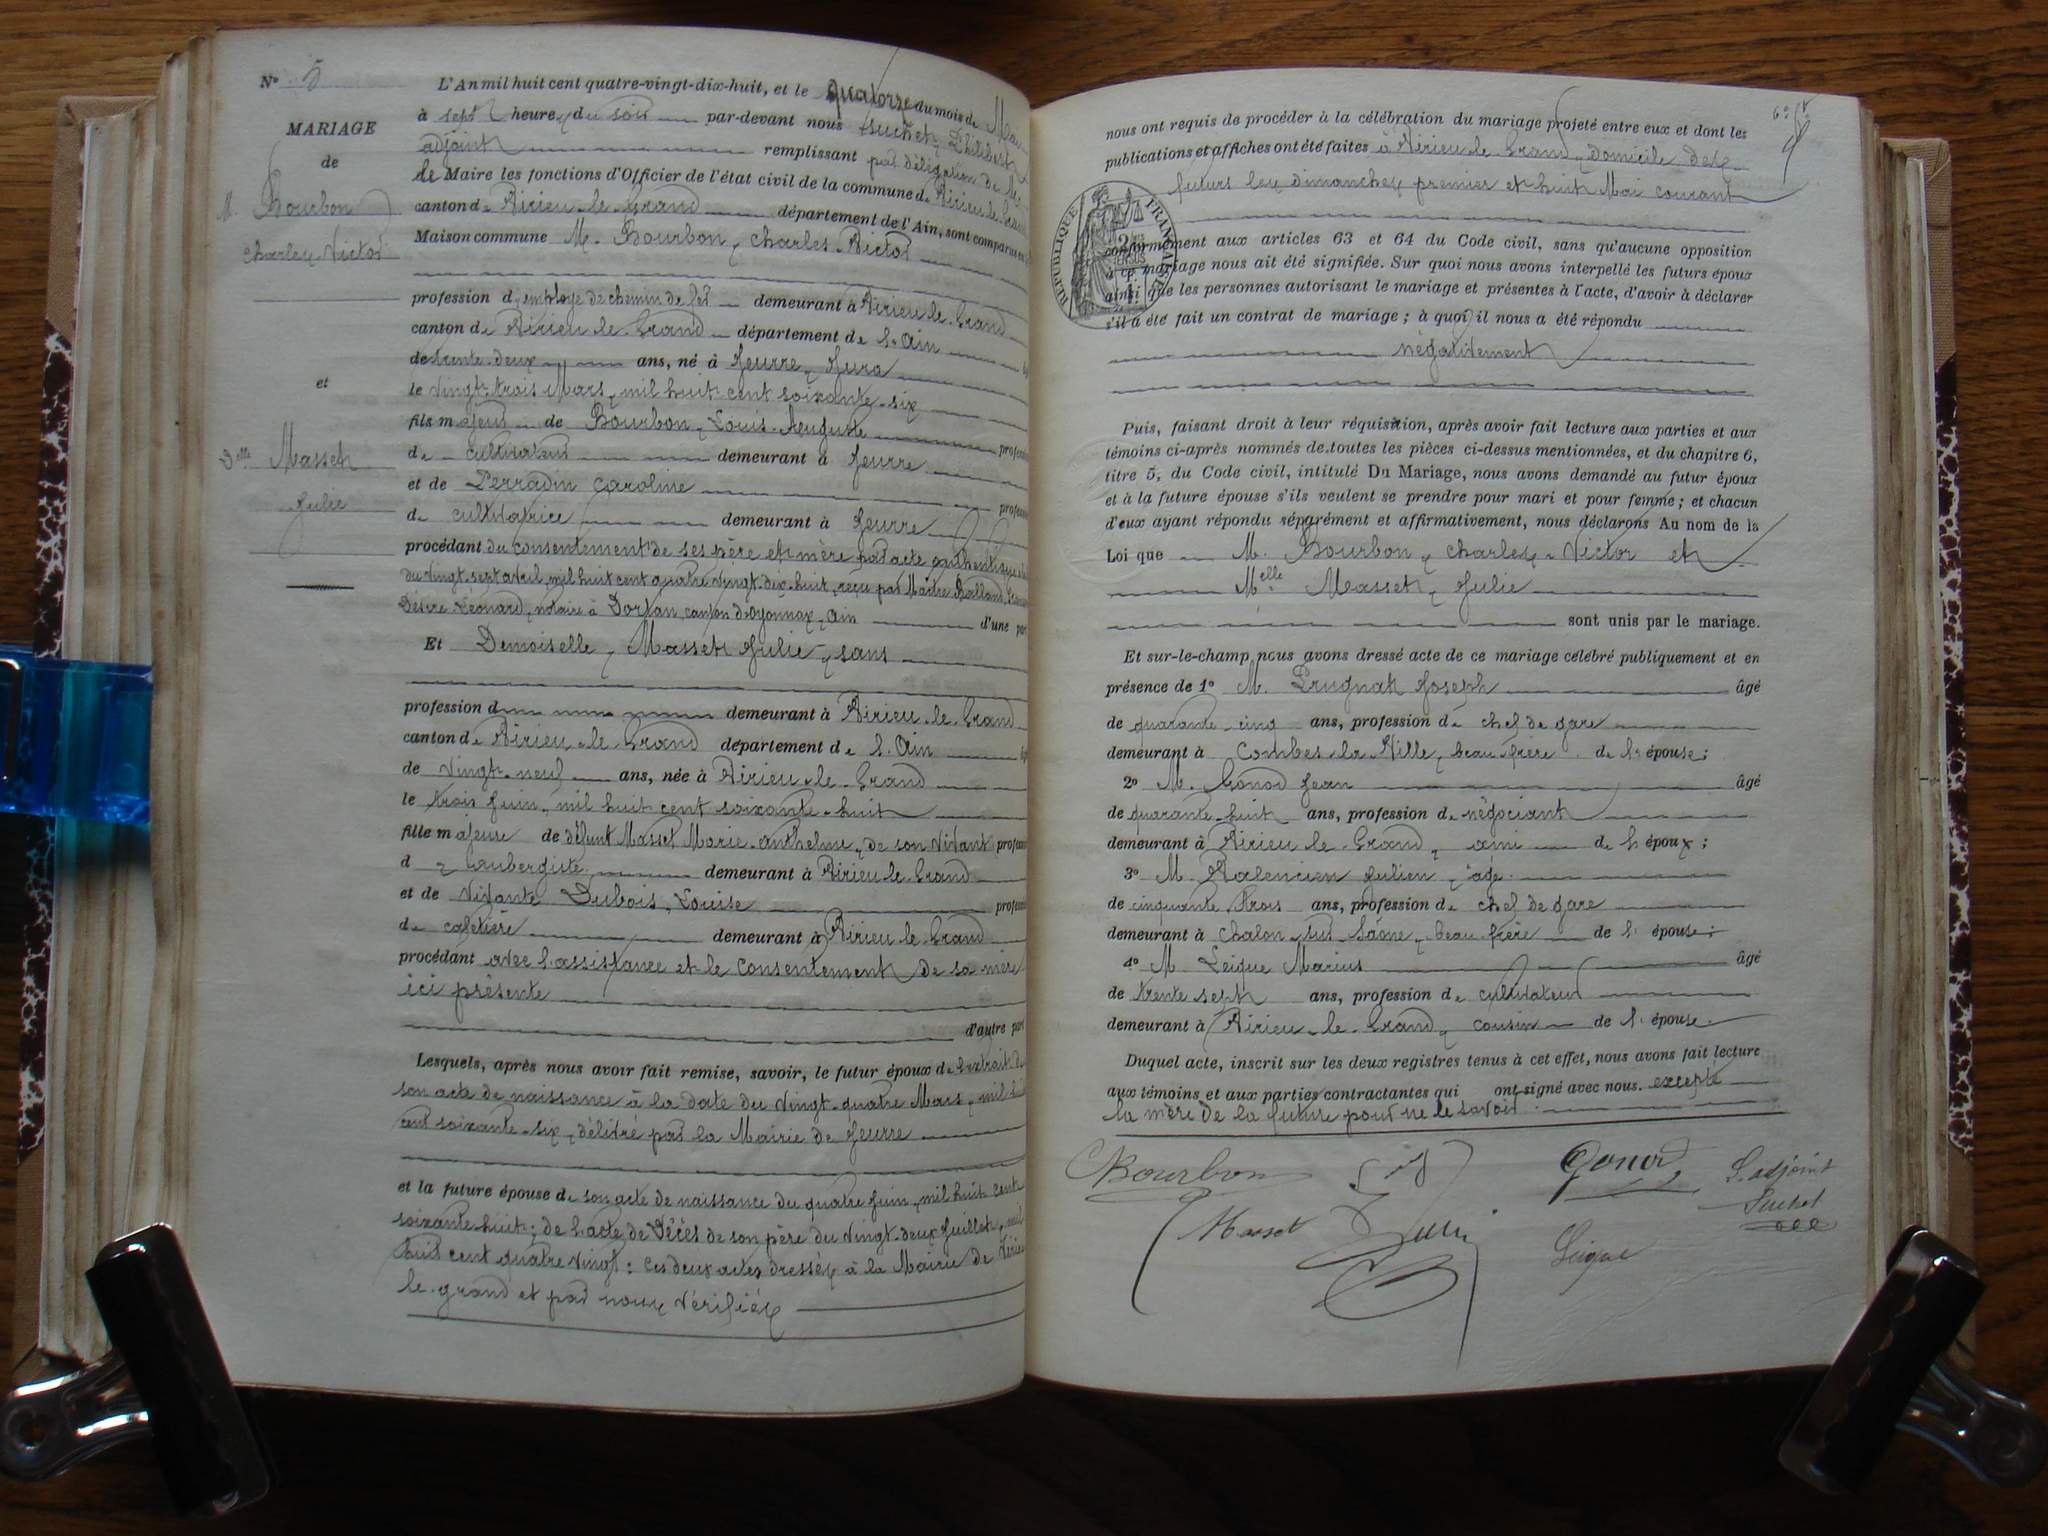 N° 5
MARIAGE
de
M. Bourbon
Charles Victor
et
Delle Masset
Julie
L'An mil huit cent quatre-vingt-dix-huit, et le quatorze du mois de Mai
à sept heures du soir par-devant nous Suchet, Philibert
adjoint remplissant par délégation de Mr
le Maire les fonctions d'Officier de l'état civil de la commune de Virieu-le-Grand
canton de Virieu-le-Grand département de l'Ain, sont comparus en
Maison commune M. Bourbon, Charles-Victor
profession d'employé de chemin de fer demeurant à Virieu-le-Grand
canton de Virieu-le-Grand département de l'Ain
de trente-deux ans, né à Jeurre, Jura
le vingt-trois Mars, mil huit cent soixante-six
fils majeur de Bourbon, Louis-Auguste profess
de cultivateur demeurant à Jeurre
et de Perradin Caroline profess
de cultivatrice demeurant à Jeurre
procédant du consentement de ses père et mère par acte authentique
du vingt-sept avril, mil huit cent quatre vingt-dix-huit, reçu par Maître Balland
Désiré Léonard, notaire à Dortan, canton d'Oyonnax, Ain d'une part
Et Demoiselle, Masset Julie, sans
profession d demeurant à Virieu-le-Grand
canton de Virieu-le-Grand département de l'Ain
de vingt-neuf ans, née à Virieu-le-Grand
le trois Juin, mil huit cent soixante-huit
fille majeure de défunt Masset Marie-Anthelme, de son vivant profess
d'aubergiste demeurant à Virieu-le-Grand
et de vivante Dubois, Louise profess
de cafetière demeurant à Virieu-le-Grand
procédant avec l'assistance et le consentement de sa mère
ici présente
d'autre part
Lesquels, après nous avoir fait remise, savoir, le futur époux de l'extrait de
son acte de naissance à la date du vingt-quatre Mars, mil huit
cent soixante-six, délivré par la Mairie de Jeurre
et la future épouse de son acte de naissance du quatre Juin, mil huit cent
soixante-huit; de l'acte de décès de son père du vingt-deux Juillet, mil
huit cent quatre vingt: ces deux actes dressés à la Mairie de Virieu
le-grand et par nous vérifiés
nous ont requis de procéder à la célébration du mariage projeté entre eux et dont les
publications et affiches ont été faites à Virieu-le-Grand, domicile des
futurs les dimanches premier et huit Mai courant
RÉPUBLIQUE FRANÇAISE
conformément aux articles 63 et 64 du Code civil, sans qu'aucune opposition
à ce mariage nous ait été signifiée. Sur quoi nous avons interpellé les futurs époux
ainsi que les personnes autorisant le mariage et présentes à l'acte, d'avoir à déclarer
s'il a été fait un contrat de mariage; à quoi il nous a été répondu
négativement
Puis, faisant droit à leur réquisition, après avoir fait lecture aux parties et aux
témoins ci-après nommés de toutes les pièces ci-dessus mentionnées, et du chapitre 6,
titre 5, du Code civil, intitulé Du Mariage, nous avons demandé au futur époux
et à la future épouse s'ils veulent se prendre pour mari et pour femme; et chacun
d'eux ayant répondu séparément et affirmativement, nous déclarons Au nom de la
Loi que M. Bourbon, Charles-Victor et
Melle Masset, Julie
sont unis par le mariage.
Et sur-le-champ nous avons dressé acte de ce mariage célébré publiquement et en
présence de 1° M. Prugnat Joseph âgé
de quarante-cinq ans, profession de chef de gare
demeurant à Combes-la-Ville, beau-frère de l'épouse;
2° M. Gonod Jean âgé
de quarante-huit ans, profession de négociant
demeurant à Virieu-le-Grand, ami de l'époux;
3° M. Valencien Julien, âgé
de cinquante-trois ans, profession de chef de gare
demeurant à Chalon-sur-Saône, beau-frère de l'épouse;
4° M. Leigue Marius âgé
de trente-sept ans, profession de cultivateur
demeurant à Virieu-le-Grand, cousin de l'épouse.
Duquel acte, inscrit sur les deux registres tenus à cet effet, nous avons fait lecture
aux témoins et aux parties contractantes qui ont signé avec nous. excepté
la mère de la future pour ne le savoir.
CBourbon
Gonod
L'adjoint
Suchet
Masset
Leigue